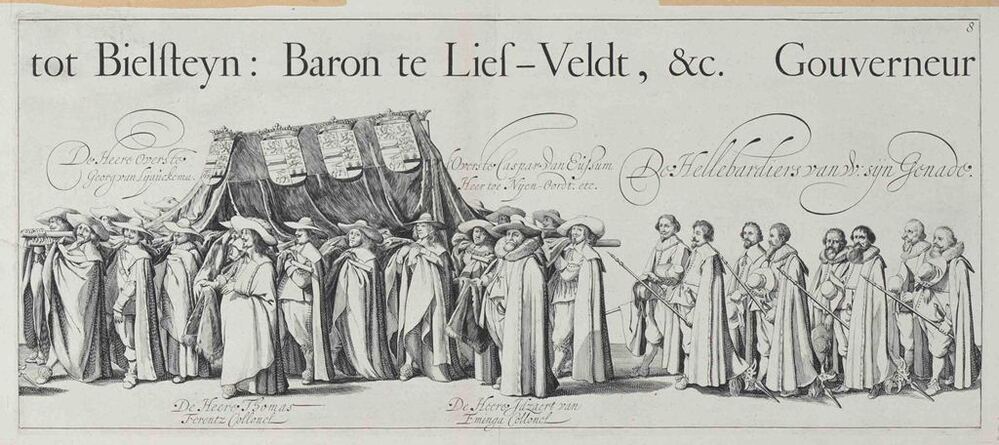 8
tot Bielſteyn: Baron te Lieſ-Veldt, &c. Gouverneur
De Heere Overste
Georg van Lyauckema
Overste Caspar van Euſsum
Heer toe Nyen-Oordt. etc.
De Hellebardiers van W: sijn Genade.
De Heere Thomas
Ferentz Collonel
De Heere Idzaert van
Eminga Collonel